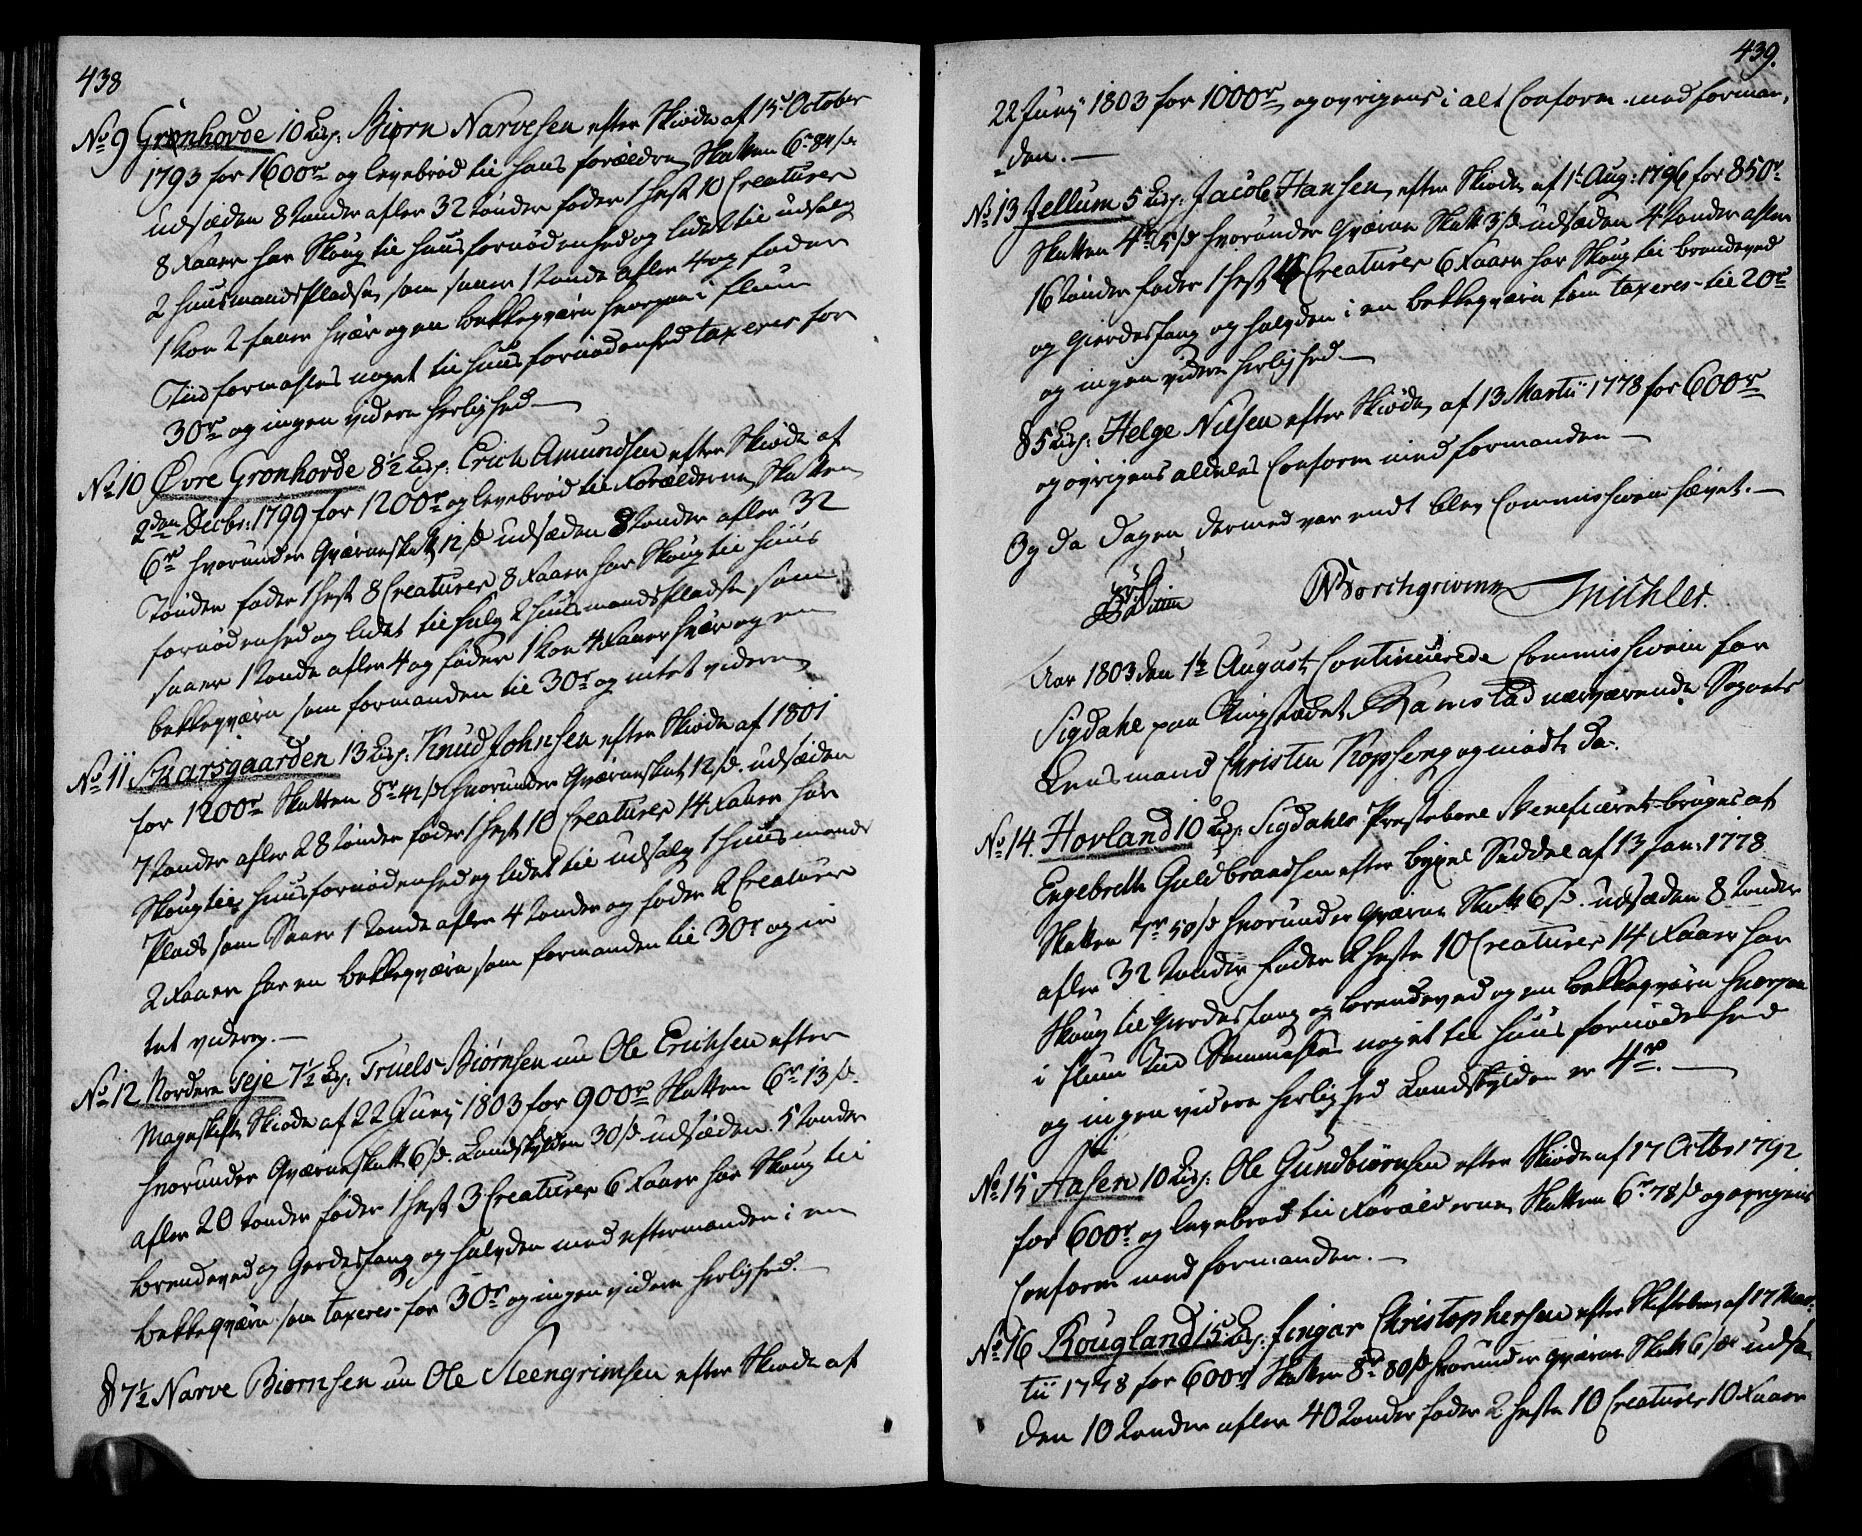 438
No 9 Grønhovde 10 Lisp: Biørn Narvesen efter Skiøde af 15d October
1793 for 1600r og levebrød til hans forældre, Skatten 6r 84 s.
udsæden 8 tønder afler 32 tønder føder 1 hest 10 Creaturer
8 Faaer har Skoug til huusfornødenhed og lidet til udsalg
2 huusmandsPladse, som saaer 1 tønde afler 4 og føder
1 Koe 2 faaer hvær og en bekkeqværn hvorpaa i flum
Tiid formahles noget til huusfornødenhed taxeres for
30r og ingen videre herlighed. —
No 10 Øvre Grønhovde 8½ Lisp. Erich Amundsen efter Skiøde af
2den Decbr: 1799 for 1200r og levebrød til Forældrene, Skatten
6r hvorunder Qværneskatt 12 s. udsæden 8 tønder afler 32
Tønder føder 1 hest 8 Creaturer 8 Faaer har Skoug til huus
fornødenhed og lidet til salg 2 huusmandsPladse som
saaer 1 tønde afler 4 og føder 1 Koe 4 Faaer hvær og en
bekkeqværn som formanden til 30r og intet videre,
No 11 Skarsgaarden 13 Lisp: Knud Johnsen efter Skiøde af 1801
for 1200r Skatten 8r 42 s. hvorunder Qværneskat 12 s. udsæden
7 tønder afler 28 tønder føder 1 hest 10 Creaturer 14 Faaer har
Skoug til huusfornødenhed og lidet til udsalg 1 huusmands
Plads som Saaer 1 tønde afler 4 tønder og føder 2 Creaturer
2 Faaer har en bekkeqværn som formanden til 30r og in
tet videre. —
No 12 Nordere Teje 7½ Lisp: Truels Biørnsen nu Ole Erichsen efter
Mageskifte Skiøde af 22 Junij 1803 for 900r Skatten 6r 13 s.
hvorunder Qværneskatt 6 s. Landskylden 30 s. udsæden 5 tønder
afler 20 tønder føder 1 hest 3 Creaturer 6 Faaer har Skoug til
brendeved og Gerdesfang og halvden med eftermanden i en
bekkeqværn som taxeres for 30r og ingen videre herlighed. —
8 7½ Narve Biørnsen nu Ole Steengrimsen efter Skiøde af
439.
22 Junij 1803 for 1000r og øvrigens i alt Conform med forman,
„den. —
No 13 Jellum 5 Lisp: Jacob Hansen, efter Skiøde, af 1t Aug: 1796 for 850r
Skatten 4r 5 s. hvorunder Qværne Skatt 3 s. udsæden 4 tønder afler
16 tønder føder 1 hest 4 Creaturer 6 Faaer har Skoug til brendeved
og Gierdesfang og halvden i en bekkeqværn som taxeres til 20r
og ingen videre herlighed —
8 5 Lisp: Helge Nielsen efter Skiøde, af 13 Martii 1778 for 600r
og øvrigens aldeles Conform med formanden —
Og da dagen dermed var endt blev Commissionen hævet. —
Borchgrevink Michlet.
Aar 1803 den 1te August, Continuerede Commissionen for
Sigdahl paa Tingstædet Ramstad nærværende Sognets
Lensmand Christen Kopseng og mødte da.
No 14. Hovland 10 Lisp: Sigdahls Prestebord Beneficeret bruges af
Engebreth Guldbrandsen efter bygsel Seddel af 13 Jan: 1778
Skatten 7r 50 s. hvorunder Qværne Skatt 6 s. udsæden 8 tønder
afler 32 tønder føder 2 heste 10 Creaturer 14 Faaer har
Skoug til Gierdesfang og brendeved og en bekkeqværn hvorpaa
i flum Tid formahles noget til huusfornødenhed
og ingen videre herlighed Landskylden er 4r. —
No 15 Aasen 10 Lisp: Ole Gundbiørnsen efter Skiøde af 17 Octbr 1792
for 600r og levebrød til Forældrene, Skatten 6r 78 s. og øvrigens
Conform med formanden. —
No 16 Kougland 15 Lisp: Lingar Christophersen efter Skiftebrev af 17 Mar-
tii 1778 for 600r Skatten 8r 80 s. hvorunder Qværne Skatt 6 s. udsæ-
den 10 tønder afler 40 tønder føder 2 heste 10 Creaturer 10 Faaer